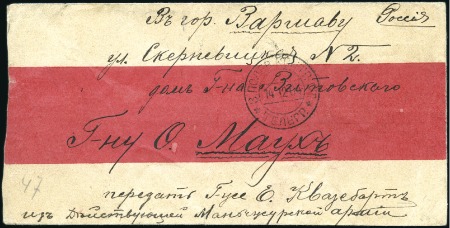 Въ гор. Варшаву Россія
ул. Скерневицкой N 2.
домъ Г-на
Г-ну О. Маухъ
47
передать Гусе Е. Квазебартъ
изъ Действующей Маньчжурской арміи